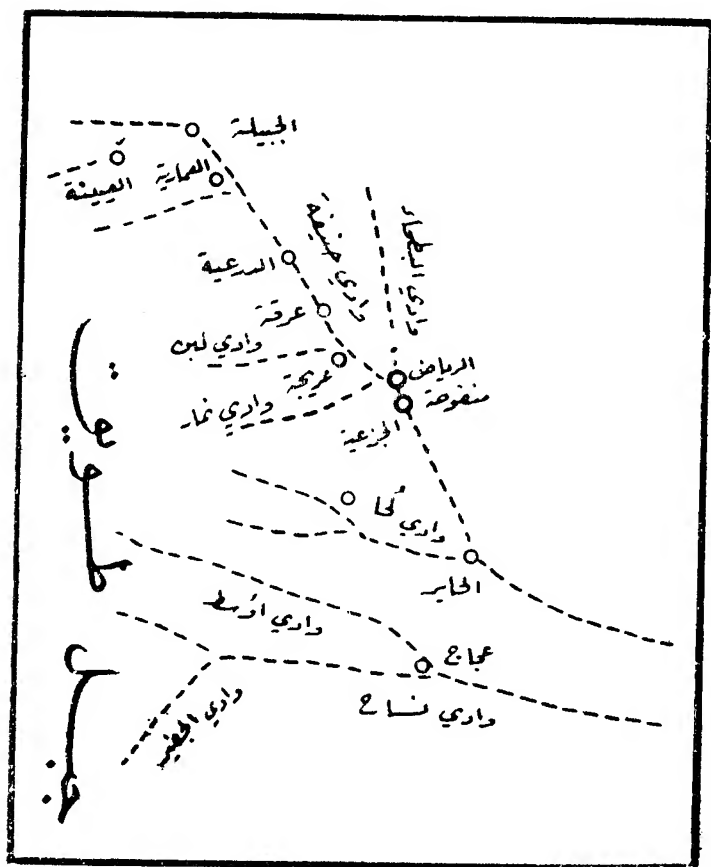 الجبيلة
العمارية
العيينة
وادي حنيفة
وادي البطحاء
الدرعية
عرقة
وادي لبن
عريجة
وادي نمار
الرياض
منفوحة
الجزعية
وادي لحا
الحاير
وادي أوسط
عجاج
وادي نساح
جبل طويق